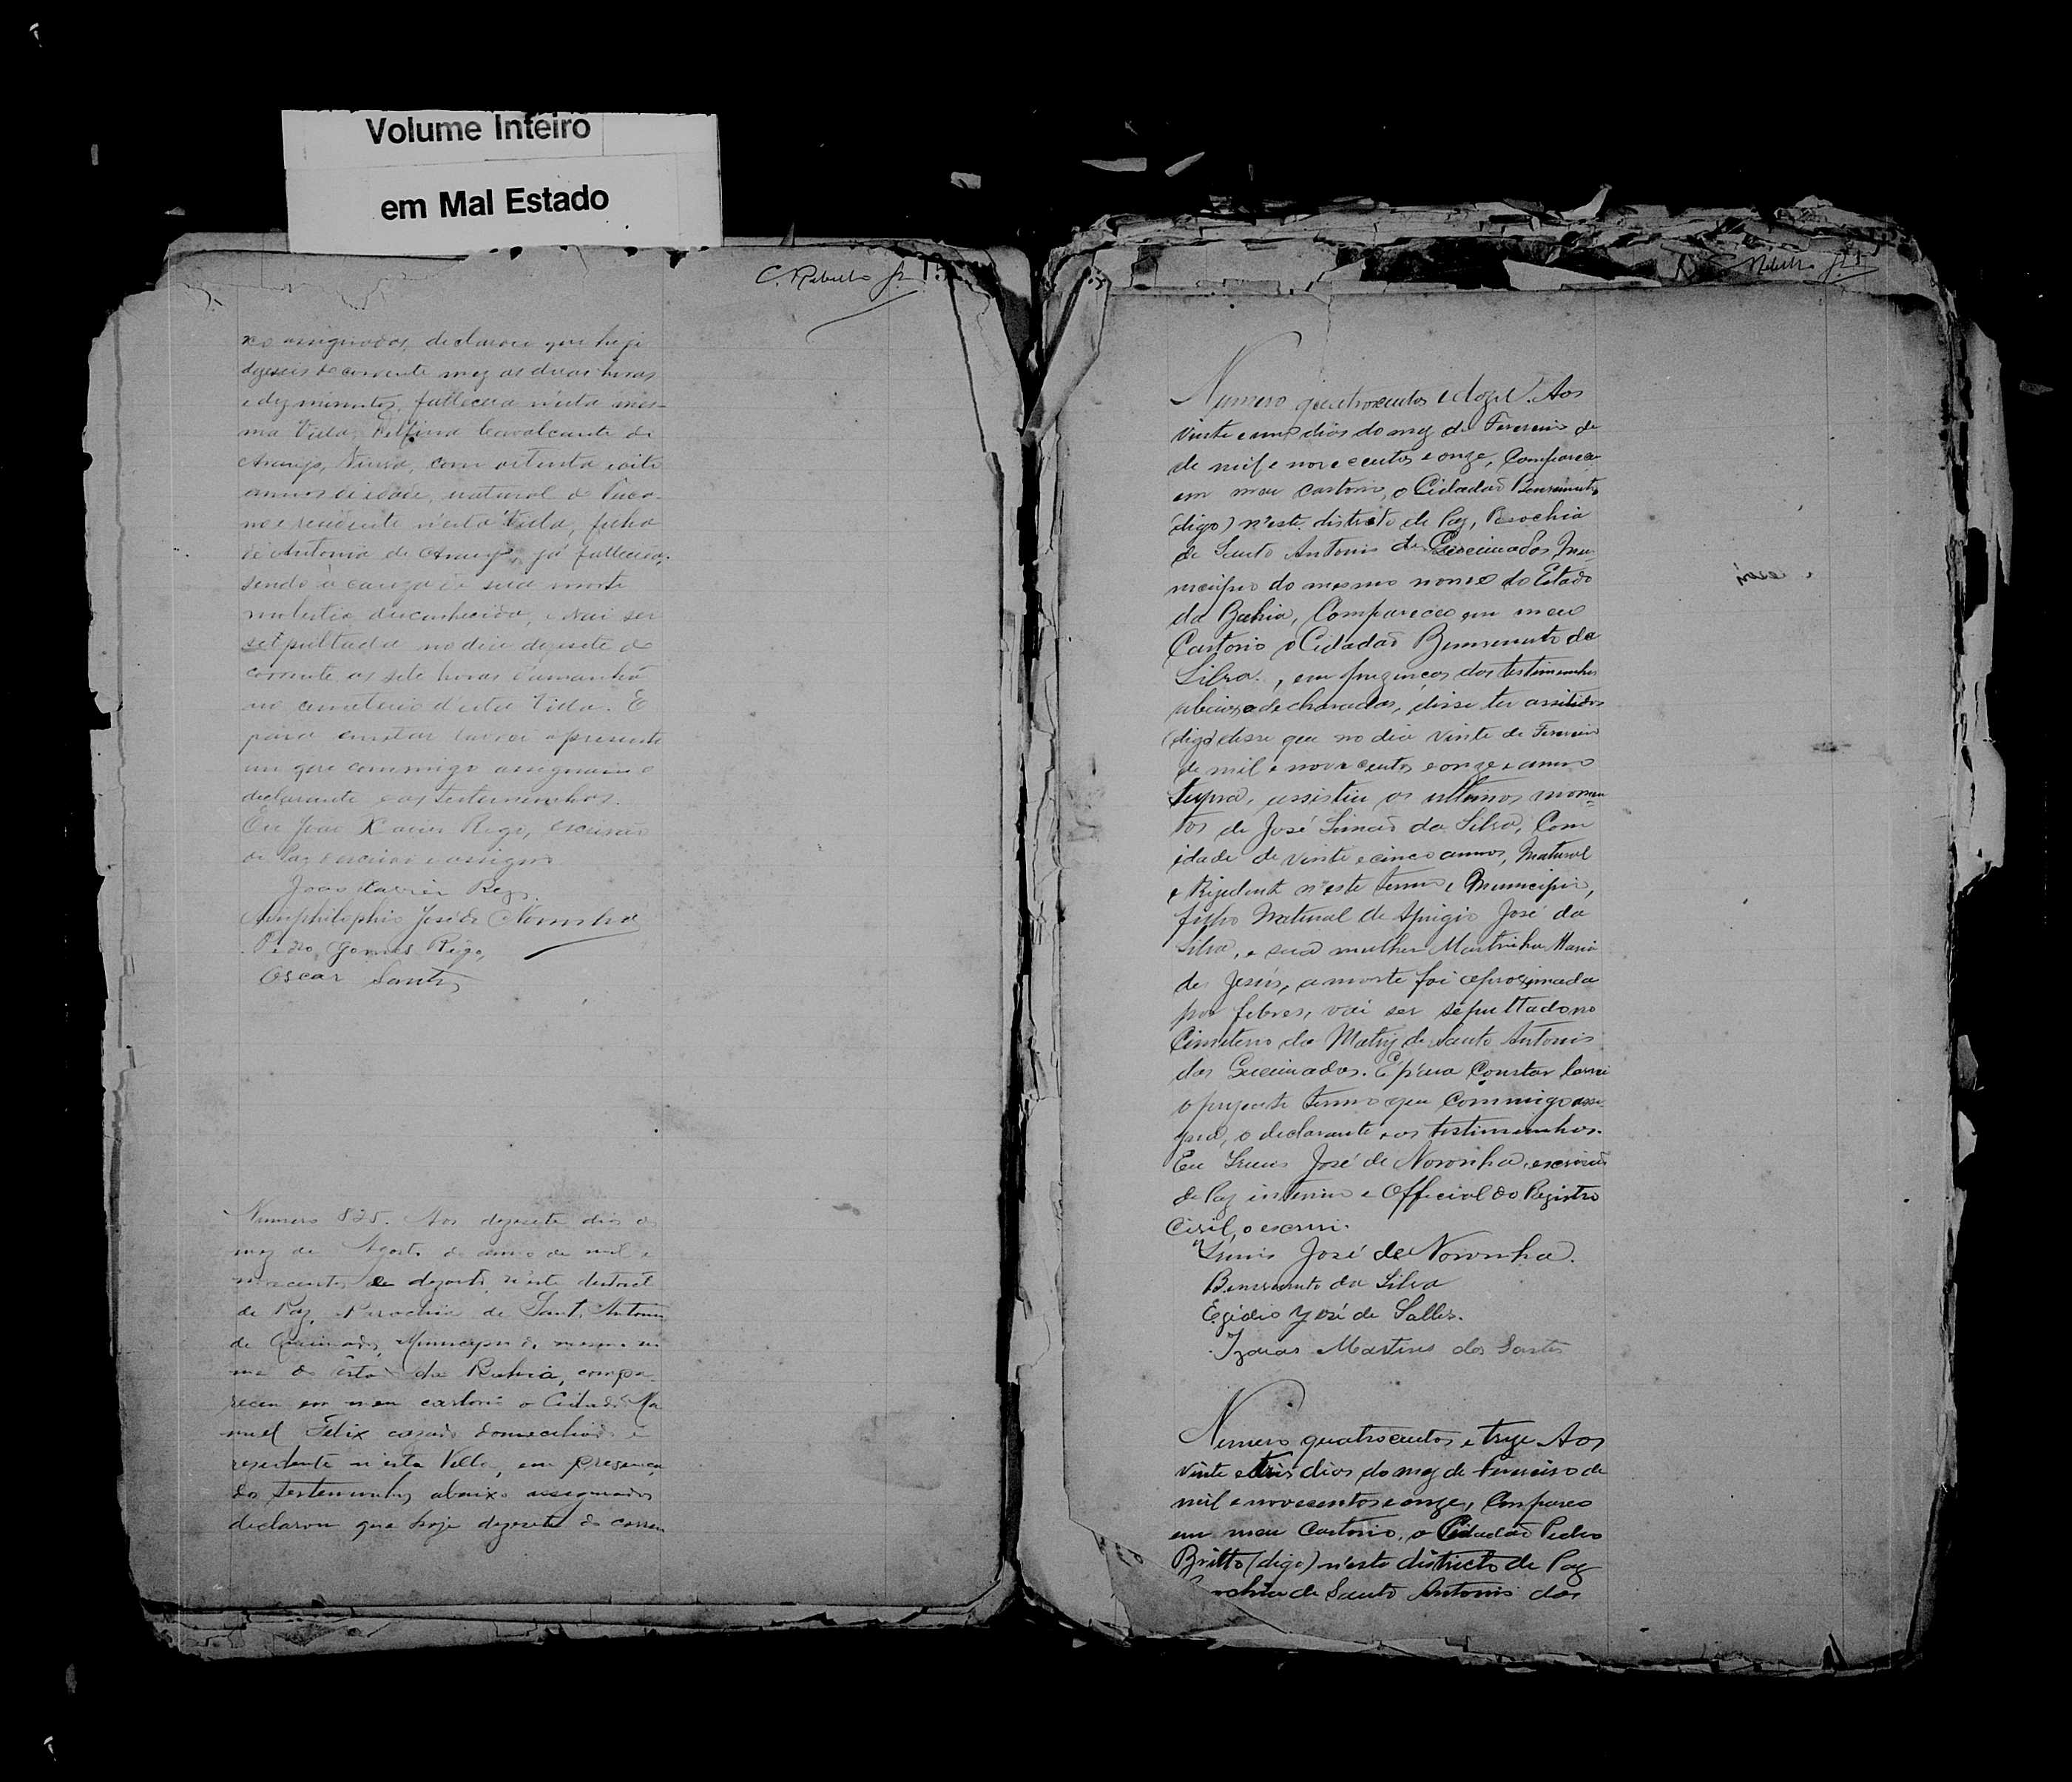 Volume Inteiro
em Mal Estado
C. Rebello Jr
declarou que hoje
dezeseis do corrente mez as duas horas
e dez minutos, falleceu n'esta mes-
ma Villa, Delfina Cavalcante de
Araujo, com oitenta e oito
annos de idade, natural de
residente n'esta Villa, filha
de Antonia de Araujo, já fallecida,
sendo a cauza de sua morte
molestia desconhecida, e vai ser
sepultada no dia dezesete do
corrente, as sete horas
no cemiterio d'esta Villa. E
para constar lavrei o presente
em que commigo assignam o
declarante e as testemunhas.
Eu João Xavier Rego, escrivão
de Paz escrevi e assigno
João Xavier Rego.
Amphilophio José de Noronha
Pedro Gomes Rego,
Oscar Santos
Numero 825. Aos dezesete dias do
mez de Agosto do anno de mil e
novecentos e dezoito, n'este destricto
de Paz, Parochia de Santo Antonio
de Queimadas, Municipio do mesmo no
me do Estado da Bahia, compa-
receu em meu cartorio o Cidadão Ma
nuel Felix casado domeciliado e
resedente n'esta Villa, em presença
das testemunhas abaixo assignados
declarou que hoje dezesete do corren
Numero quatrocentos e doze. Aos
vinte e um dias do mez de Fevereiro de
de mil e novecentos e onze, Compareceu
em meu cartorio, o Cidadão Bemvenuto
(digo) n'este districto de Paz, Parochia
de Santo Antonio de Queimadas, Mu-
nicipio do mesmo nome do Estado
da Bahia, Compareceu em meu
Cartorio o Cidadão Bemvenuto da
Silva, em prezenças das testimunhas
abaixo declaradas, disse ter assistido
(digo) disse que no dia vinte de Fevereiro
de mil e novecentos e onze e anno
supra, assistiu os ultimos momen
tos de José Simão da Silva, Com
idade de vinte e cinco annos, Natural
e Rezidente n'este termo e Municipio,
filho Natural de Aprigio José da
Silva, e sua mulher Martinha Maria
de Jesús, a morte foi aproximada
por febres, vai ser sepultado no
Cimiterio da Matriz de Santo Antonio
das Queimadas. E para Constar lavrei
o prezente termo que Commigo assi-
gna, o declarante e as testimunhas.
Eu José de Noronha, escrivão
de Paz interino e Official do Registro
Civil, o escrevi.
José de Noronha.
Bemvenuto da Silva
Egidio José de Salles.
Izaias Martins dos Santos
Numero quatrocentos e treze Aos
vinte e tres dias do mez de Fevereiro de
mil e novecentos e onze, Compareceu
em meu Cartorio, o Cidadão Pedro
Britto (digo) n'este districto de Paz
rochia de Santo Antonio das